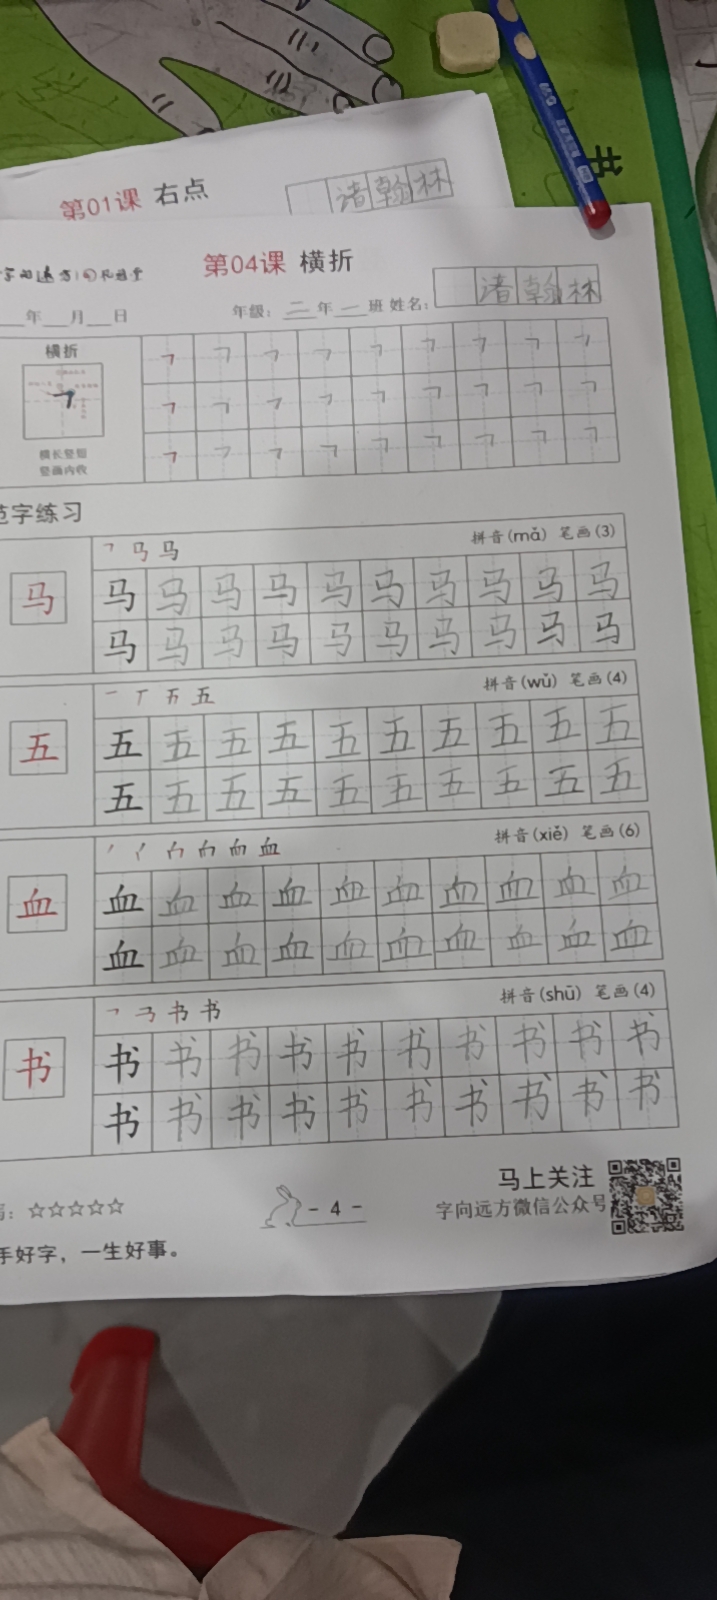 第01课 右点
渚翰林
书
第04课 横折
年 月 日 年级：二年一班 姓名：渚翰林
横折
横长竖短
竖画内收
范字练习
㇆ 马 马 拼音(mǎ) 笔画(3)
马 马 马 马 马 马 马 马 马 马 马
马 马 马 马 马 马 马 马 马 马
一 丅 五 五 拼音(wǔ) 笔画(4)
五 五 五 五 五 五 五 五 五 五 五
五 五 五 五 五 五 五 五 五 五
血 拼音(xiě) 笔画(6)
血 血 血 血 血 血 血 血 血 血 血
血 血 血 血 血 血 血 血 血 血
书 书 拼音(shū) 笔画(4)
书 书 书 书 书 书 书 书 书 书 书
书 书 书 书 书 书 书 书 书 书
马上关注
☆☆☆☆☆ - 4 - 字向远方微信公众号
手好字，一生好事。